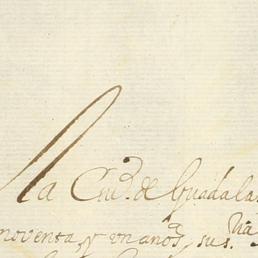 la Ciu.d de Guadala
noventa y un anos, sus.